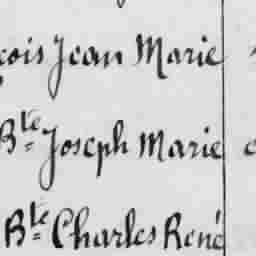 çois Jean Marie
Bte Joseph Marie
Bte Charles René